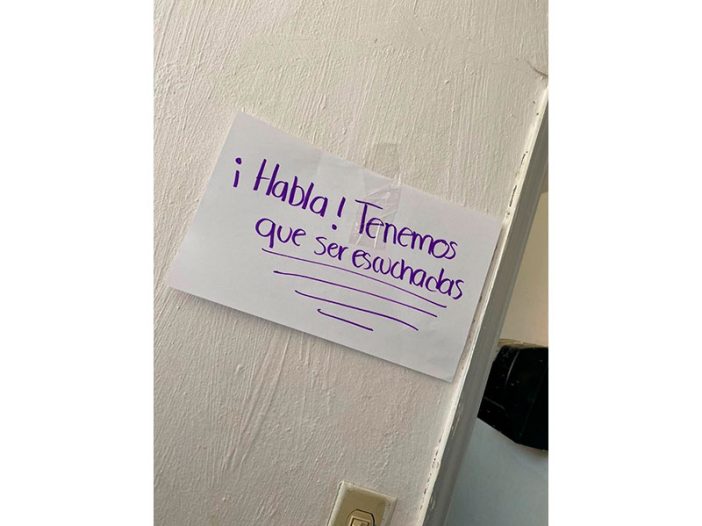 ¡Habla! Tenemos
que ser escuchadas